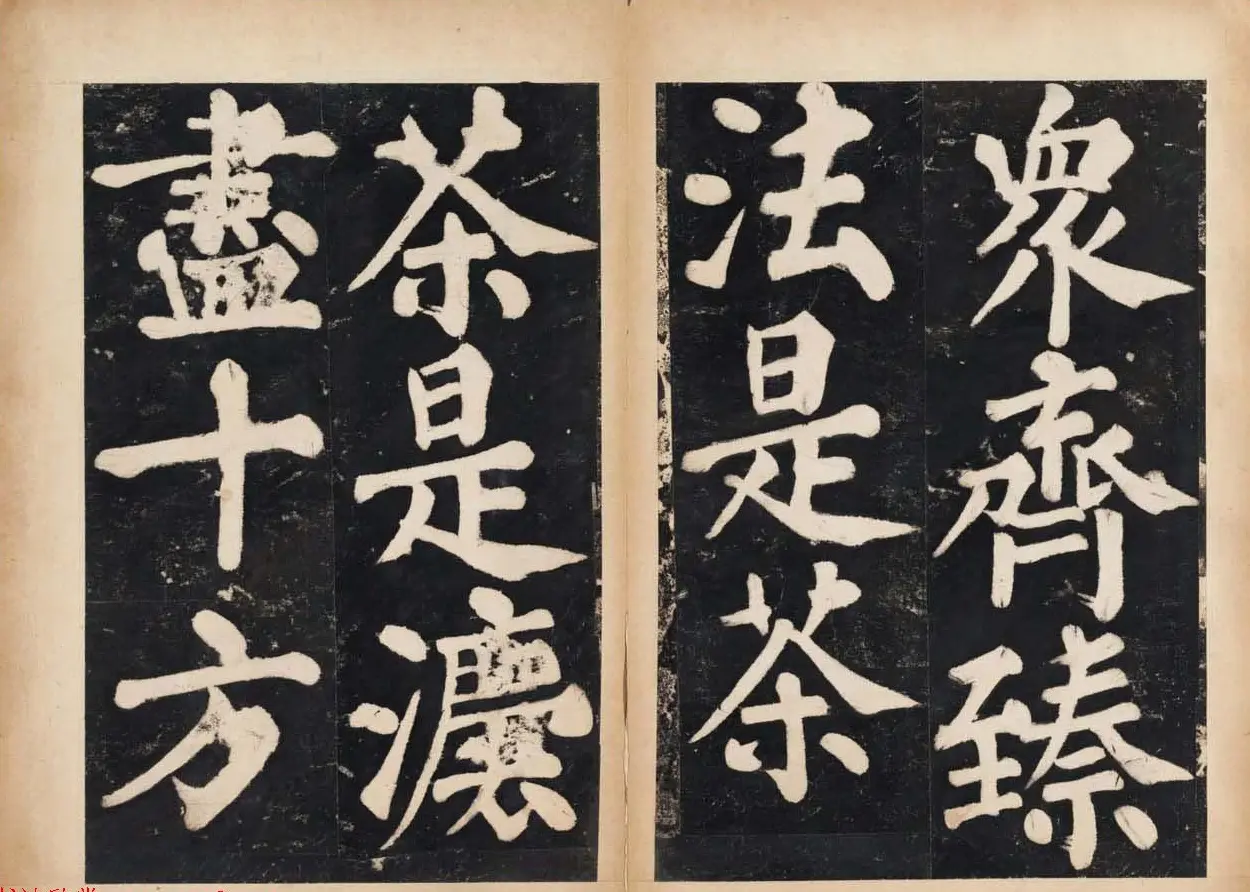 衆齊臻
法是茶
茶是灋
盡十方